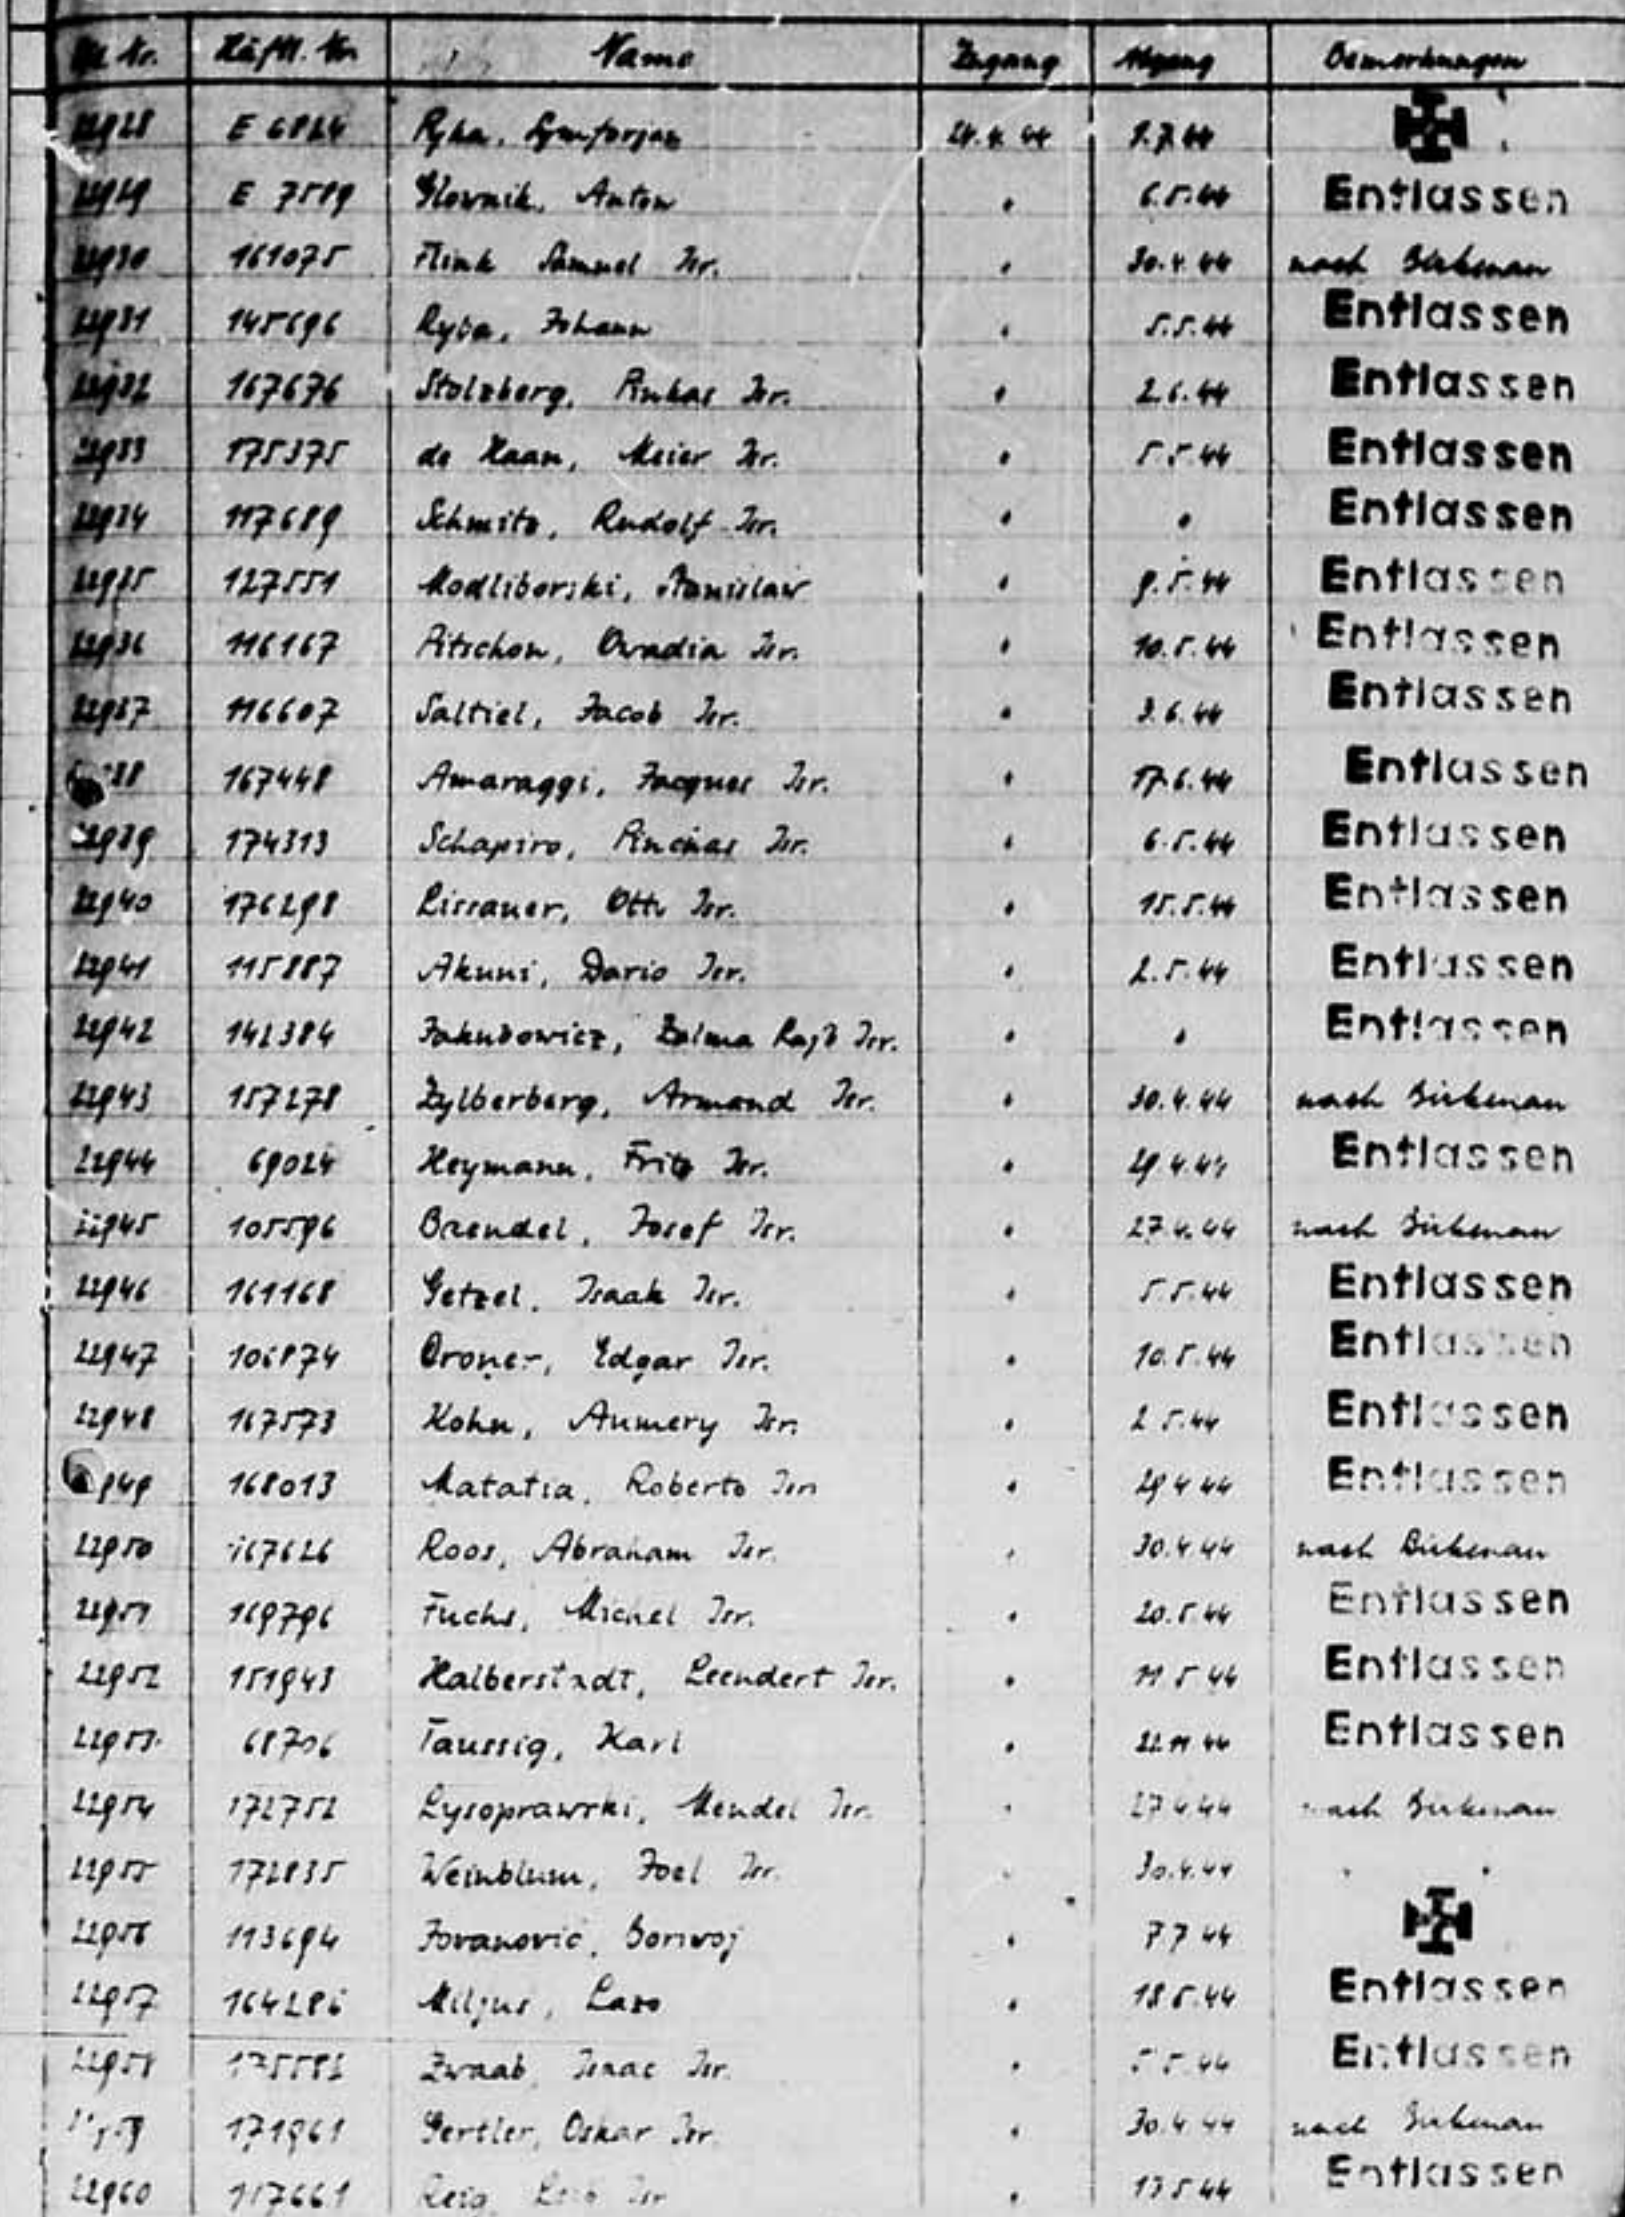 Nr. Häftl. Nr. Name Zugang Abgang Bemerkungen
22928 E 6824 Ryba, Symforjan 24.4.44 8.7.44
22929 E 7519 Glownik, Anton " 6.5.44 Entlassen
22930 161075 Flink Samuel Isr. " 30.4.44 nach Birkenau
22931 145696 Ryba, Johann " 5.5.44 Entlassen
22932 167676 Stolzberg, Pinkas Isr. " 2.6.44 Entlassen
22933 175375 de Haan, Meier Isr. " 5.5.44 Entlassen
22934 117689 Schmitz, Rudolf Isr. " " Entlassen
22935 127551 Modliborski, Stanislaw " 9.5.44 Entlassen
22936 116167 Pitschon, Owadia Isr. " 10.5.44 Entlassen
22937 116607 Saltiel, Jacob Isr. " 3.6.44 Entlassen
38 167448 Amaraggi, Jacques Isr. " 17.6.44 Entlassen
22939 174313 Schapiro, Pinchas Isr. " 6.5.44 Entlassen
22940 176298 Lissauer, Otto Isr. " 15.5.44 Entlassen
22941 115887 Akuni, Dario Isr. " 2.5.44 Entlassen
22942 142384 Jakubowicz, Zalma Rajb Isr. " " Entlassen
22943 157278 Zylberberg, Armand Isr. " 30.4.44 nach Birkenau
22944 69024 Heymann, Fritz Isr. " 29.4.44 Entlassen
22945 105596 Brendel, Josef Isr. " 27.4.44 nach Birkenau
22946 161168 Getzel, Isaak Isr. " 5.5.44 Entlassen
22947 106874 Croner, Edgar Isr. " 10.5.44 Entlassen
22948 167573 Kohn, Aumery Isr. " 2.5.44 Entlassen
949 168013 Matatia, Roberto Isr. " 29 4 44 Entlassen
22950 167626 Roos, Abraham Isr. " 30.4.44 nach Birkenau
22951 169796 Fuchs, Michel Isr. " 20.5.44 Entlassen
22952 151943 Halberstadt, Leendert Isr. " 11 5 44 Entlassen
22953 68706 Taussig, Karl " 22.11.44 Entlassen
22954 172752 Lysoprawski, Mendel Isr. " 27 4 44 nach Birkenau
22955 172835 Weinblum, Joel Isr. " 30.4.44 "
22956 113694 Jovanovic, Borivoj " 7.7 44
22957 164286 Miljus, Lazo " 18 5.44 Entlassen
22958 175582 Zwaab, Isaac Isr. " 5 5.44 Entlassen
59 171961 Gertler, Oskar Isr. " 30.4 44 nach Birkenau
22960 157661 " 13 5 44 Entlassen